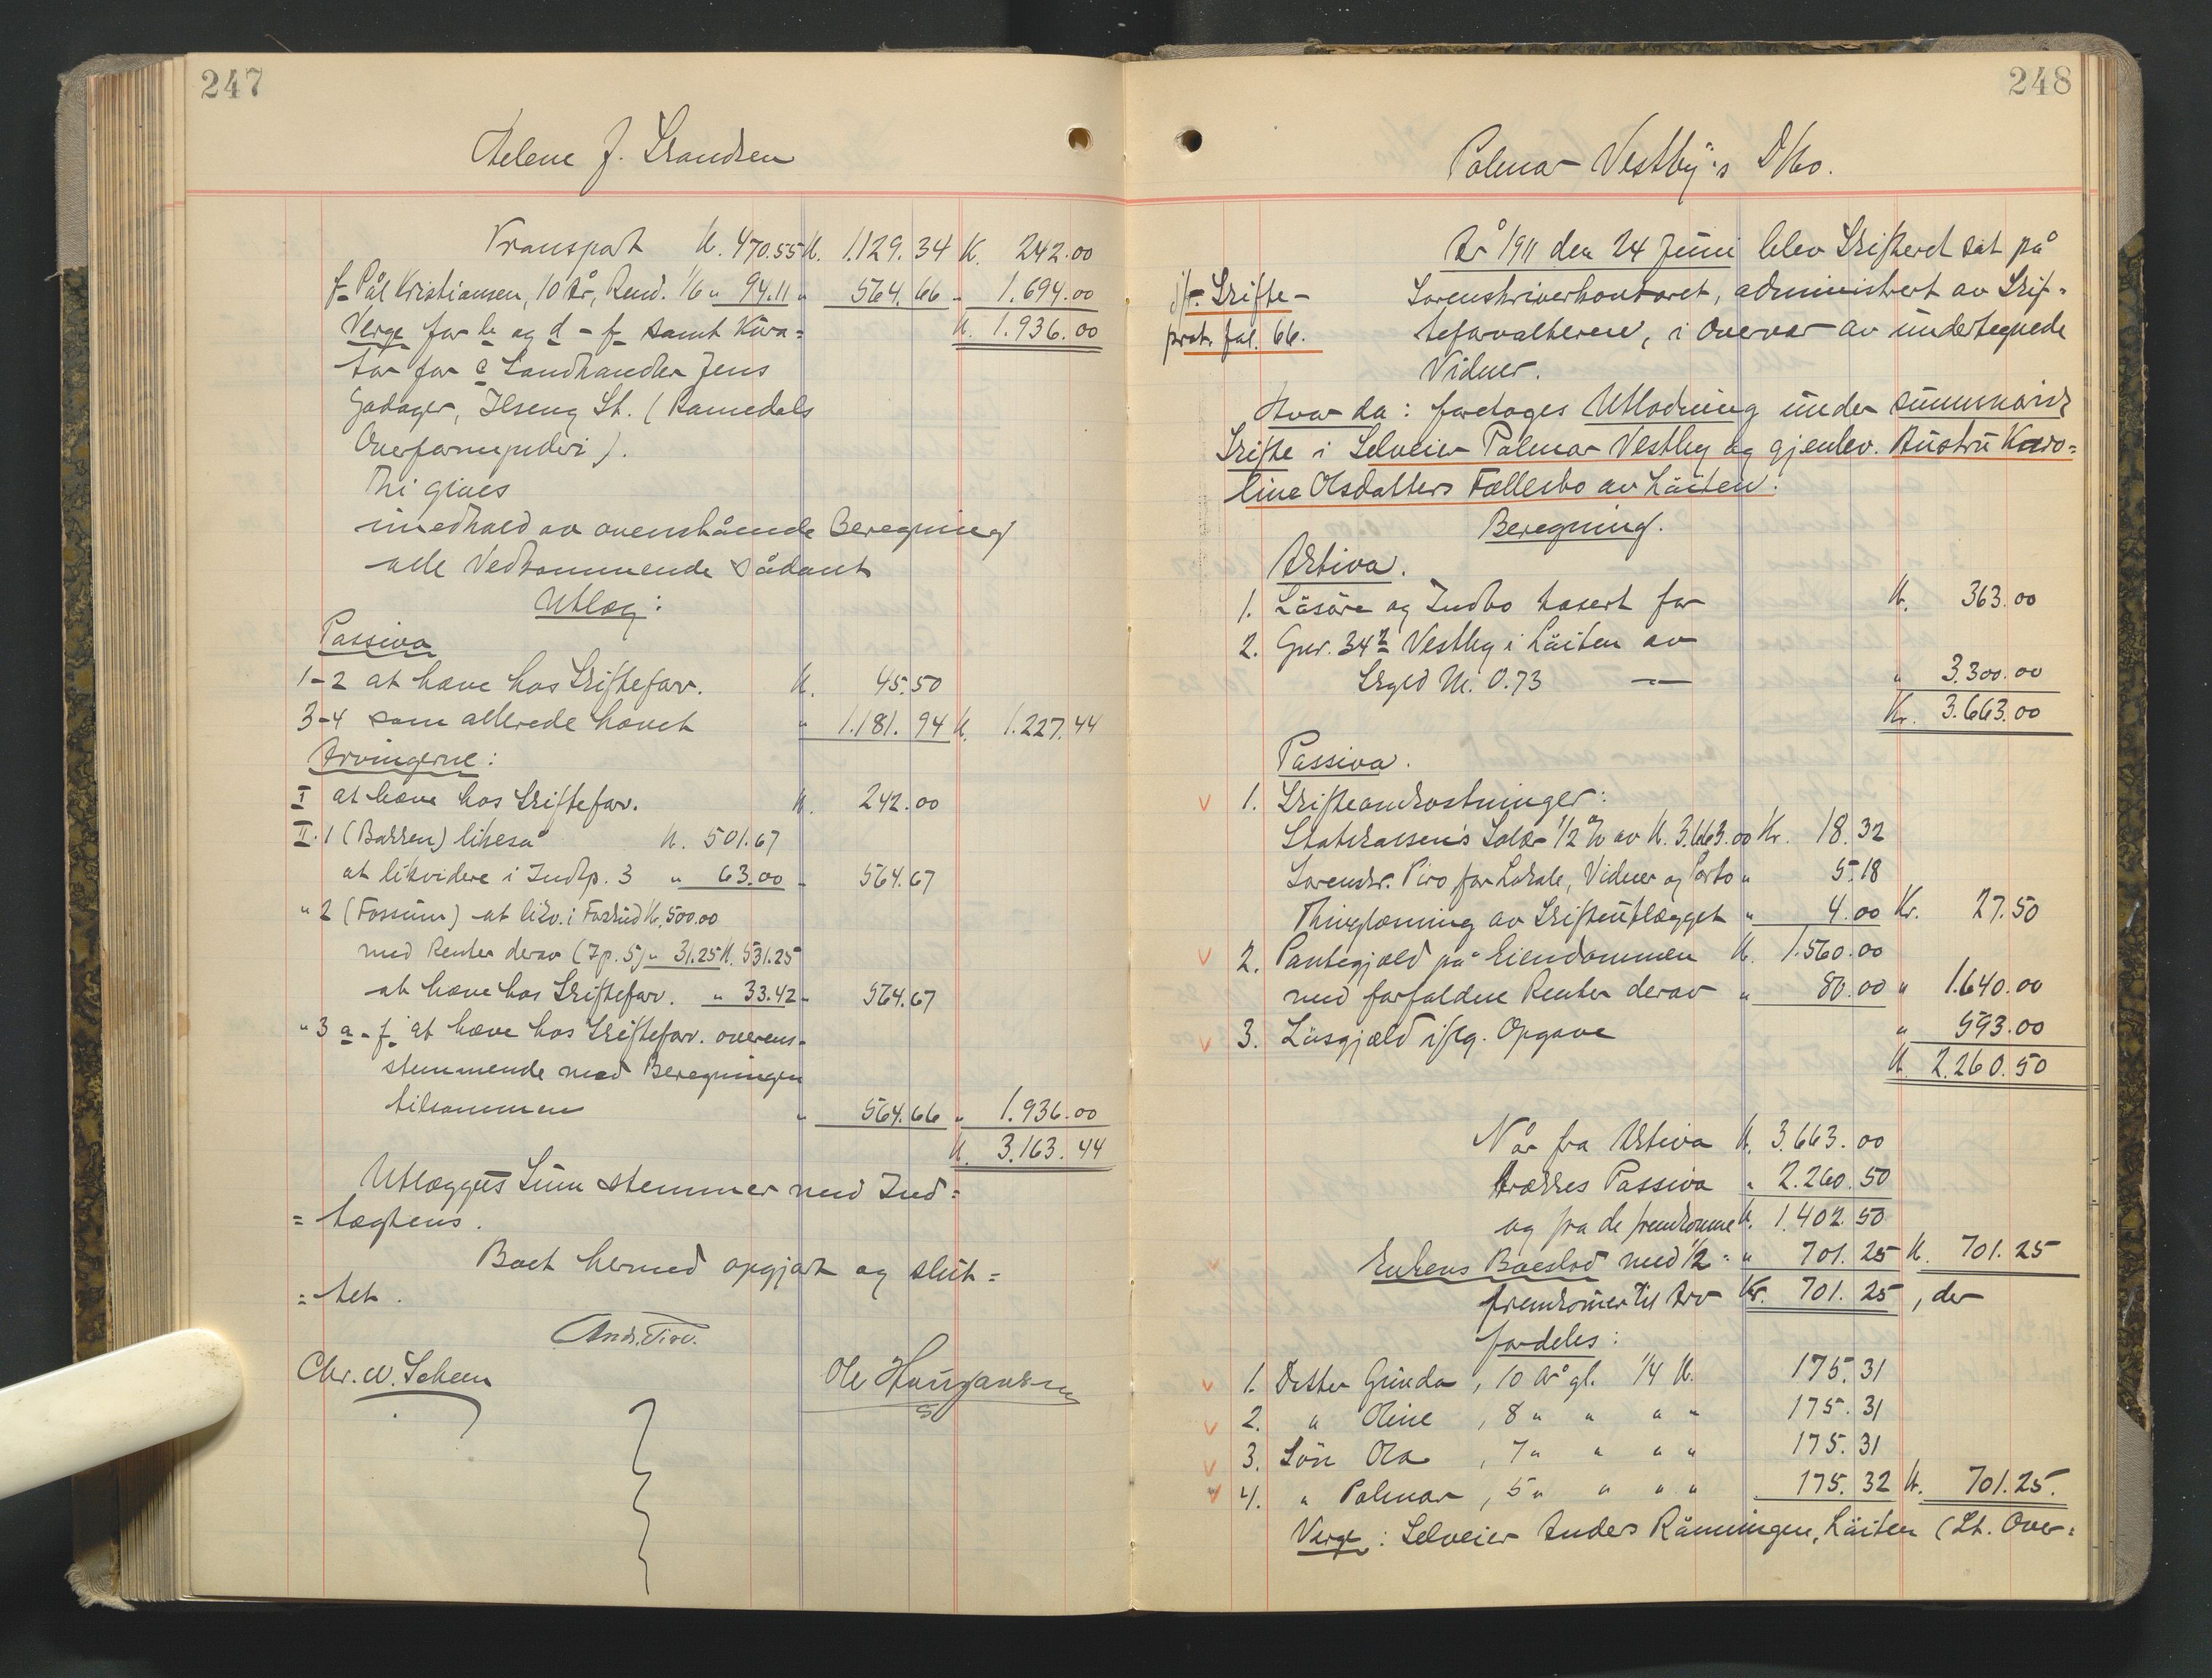 247
Helene J. Skandsen
Transport K. 470.55 K. 1.129.34 K. 242.00
f. Pål Kristiansen, 10 År, Rend. 1/6 " 94.11 " 564.66 " 1.694.00
Verge for b og d - f samt Kura= K. 1.936.00
tor for c Landhandler Jens
Gadager, Ilseng St. (Romedals
Overformynderi).
Thi gives
i medhold av ovenstående Beregning
alle Vedkommende sådant
Utlæg:
Passiva
1-2 at hæve hos Skiftefor. K. 45.50
3-4 som allerede hævet " 1.181.94 K. 1.227.44
Arvingerne:
I at hæve hos Skiftefor. K. 242.00
II. 1 (Bakken) likeså K. 501.67
at likvidere i Indtp. 3 " 63.00 " 564.67
" 2 (Fossum) at likv. i Forskud K. 500.00
med Renter derav (Ip. 5) " 31.25 K. 531.25
at hæve hos Skiftefor. " 33.42 " 564.67
" 3 a - f at hæve hos Skiftefor. overens-
stemmende med Beregningen
tilsammen " 564.66 " 1.936.00
K. 3.163.44
Utlæggets Sum stemmer med Ind=
=tægtens.
Boet hermed opgjort og slut=
=tet.
Andr. Piro.
Chr. W. Scheen
248
Palmar Vestby's D/bo.
År 1911 den 24 Juni blev Skifteret sat på
jfr. Skifte- Sorenskriverkontoret, administrert av Skif-
prot. fol. 66. teforvalteren, i Overvær av undertegnede
Vidner.
Hvor da: foretoges Utlodning under summarisk
Skifte i Selveier Palmar Vestby og gjenlev. Hustru Karo=
line Olsdatters Fællesbo av Løiten.
Beregning.
Aktiva.
1. Løsøre og Indbo taxert for K. 363.00
2. Gnr. 34² Vestby i Løiten av
Skyld M. 0.73 — " 3.300.00
Kr. 3.663.00
Passiva.
1. Skifteomkostninger:
Statskassen's Salær 1/2 % av K. 3.663.00 Kr. 18.32
Sorenskr. Piro for Lokale, Vidner og Porto " 5.18
Thinglæsning av Skifteutlægget " 4.00 Kr. 27.50
2. Pantegjæld på Eiendommen K. 1.560.00
med forfaldne Renter derav " 80.00 " 1.640.00
3. Løsgjæld iflg. Opgave " 593.00
K. 2.260.50
Når fra Aktiva K. 3.663.00
trækkes Passiva " 2.260.50
og fra de fremkomne K. 1.402.50
Enkens Boeslod med 1/2 = " 701.25 K. 701.25
fremkomer til Arv Kr. 701.25, der
fordeles:
1. Datter Gunda, 10 År gl. 1/4 K. 175.31
2. " Oline, 8 " " " " 175.31
3. Søn Ola, 7 " " " " 175.31
4. " Palmar, 5 " " " " 175.32 K. 701.25.
Verge: Selveier Anders Rønningen, Løiten (Lt. Over=